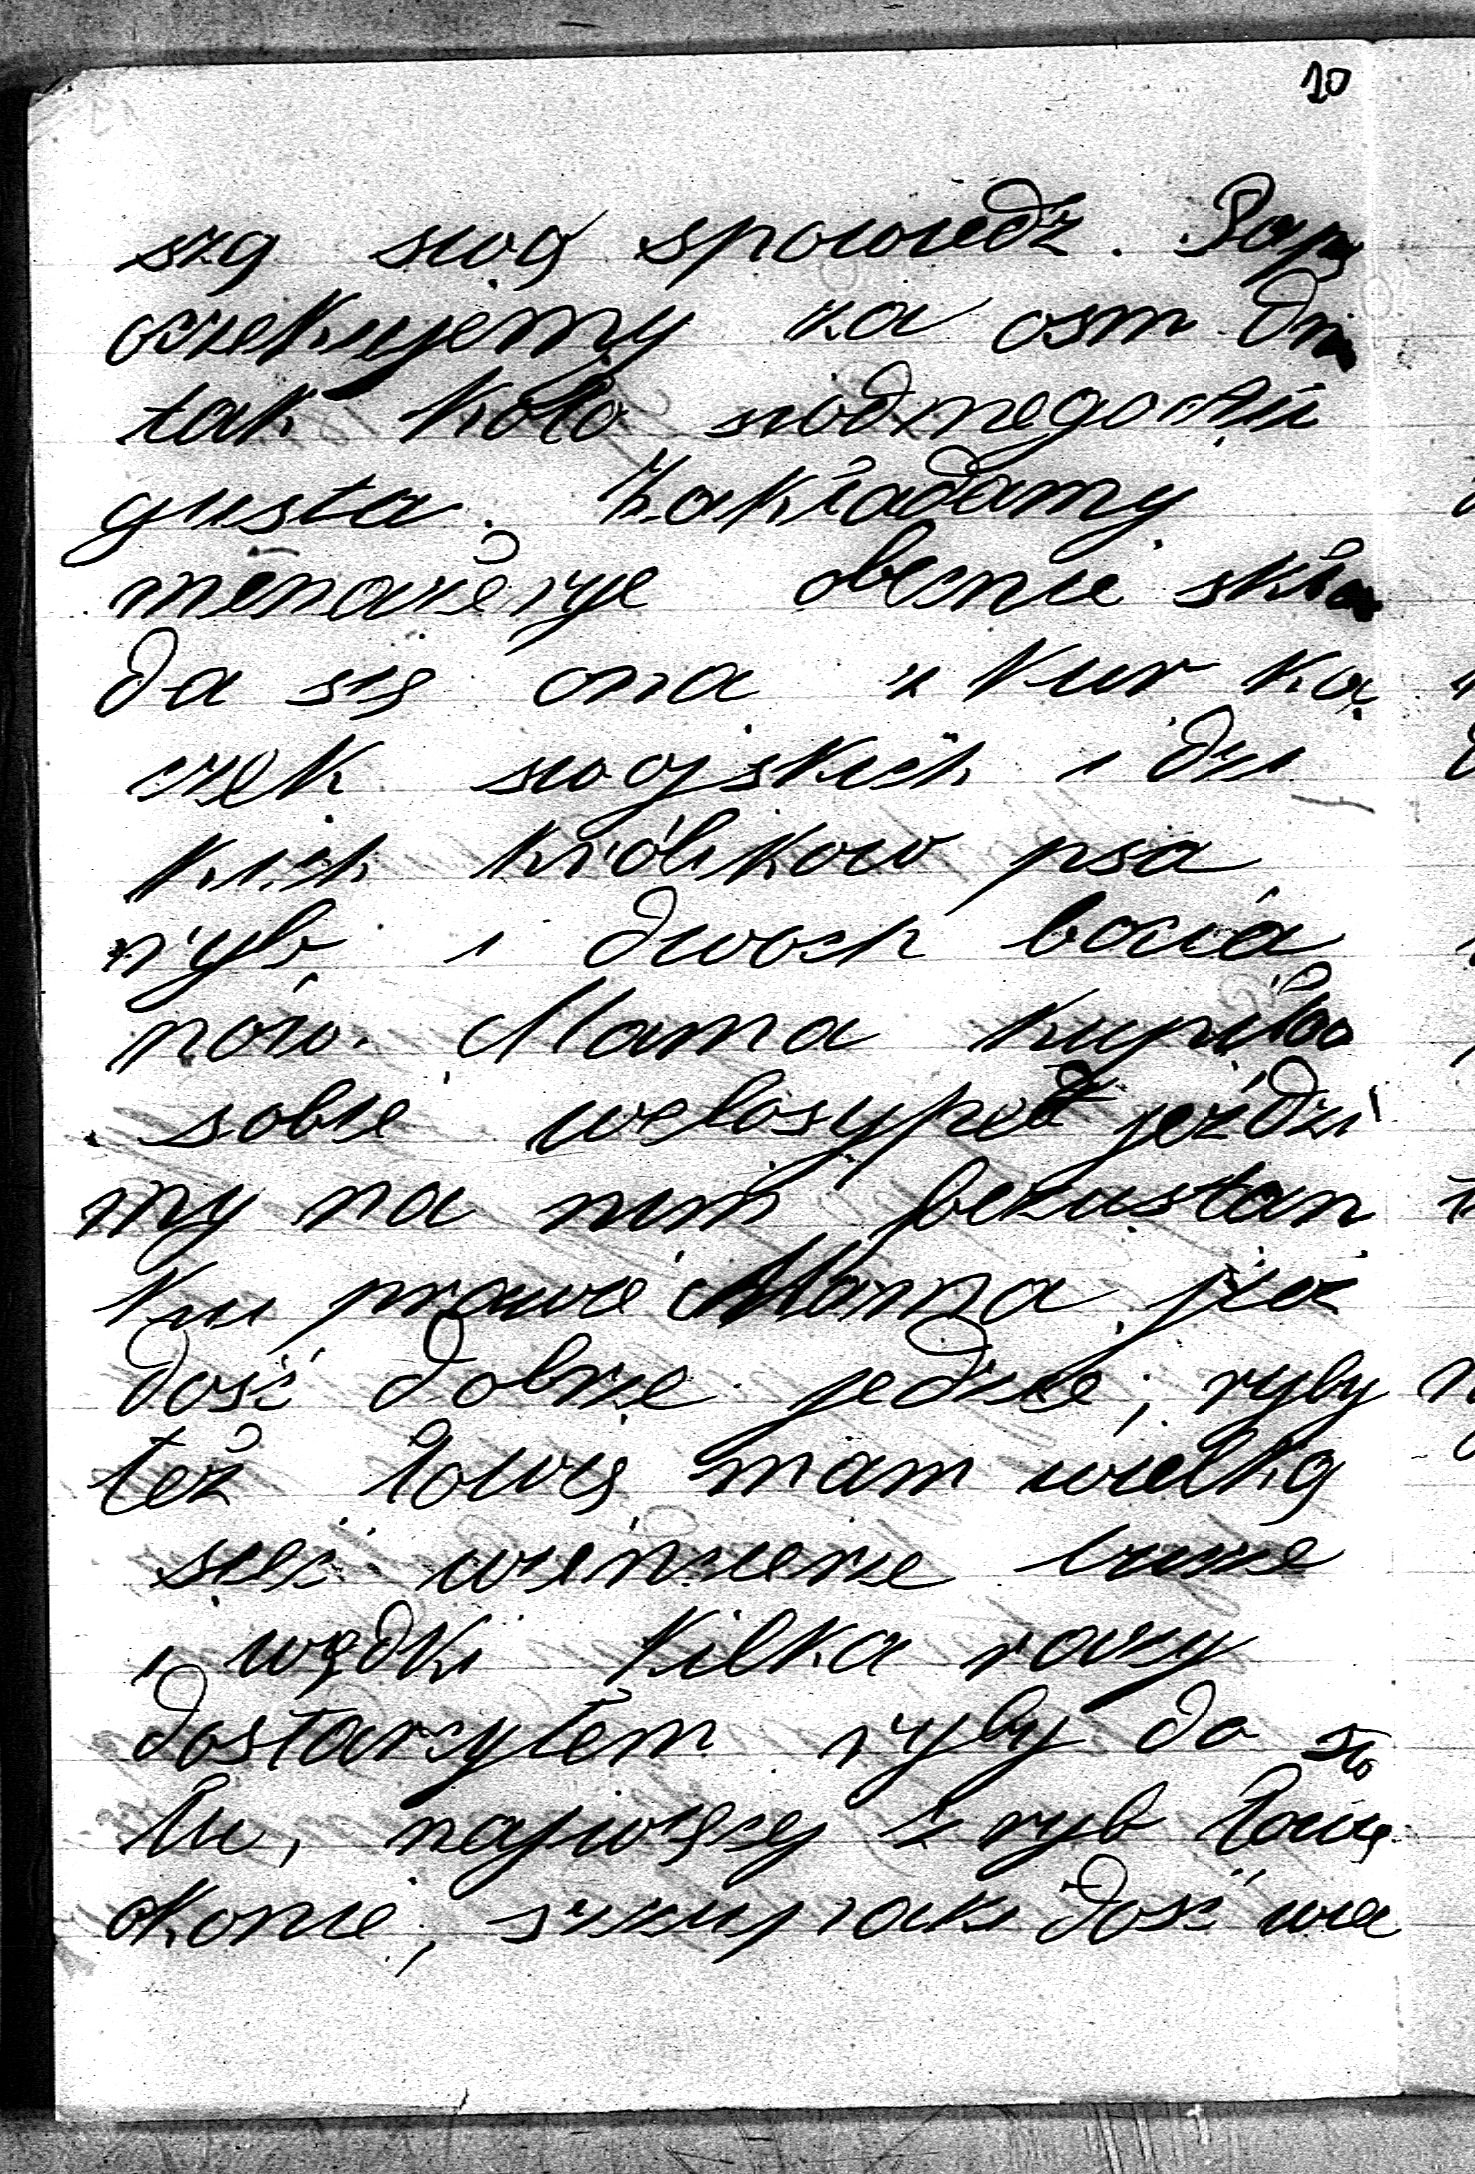 10
szą swoą spowiedz. Papę
oczekujemy za osm dni
tak koło siódmego Au
gusta. Zakładamy
menażeryę obecnie skła
da się ona z kur ka
czek swojskich i dzi
kich królików psa
ryb i dwoch bocia
nów. Mama kupiła
sobie welosyped jeździ
my na nim bezustan
ku prawie Mama już
dość dobrze jedzie; ryby
też łowię mam wielką
sieć wiencierze
i wędki kilka razy
dostarcyłem ryby do sto
łu, najwięcej z ryb łowię
okonie, szczupaki dość wie